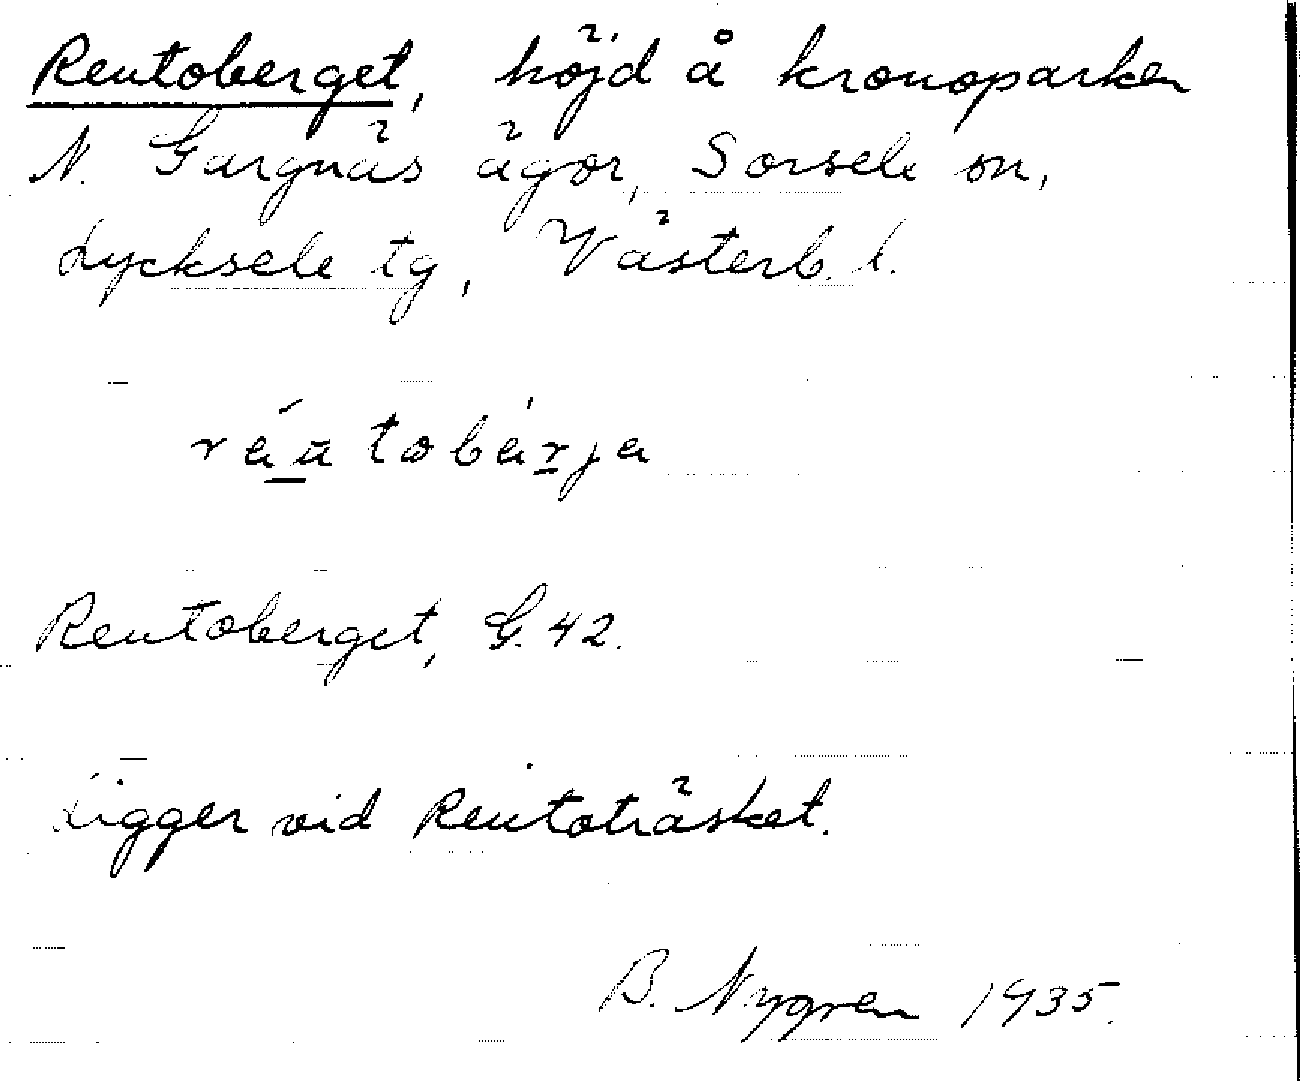 Reutoberget, höjd å kronoparken
N. Gargnäs ägor, Sorsele sn,
Lycksele tg, Västerb. l.
Reutoberget, G. 42.
Ligger vid Reutoträsket.
B. Nygren 1935.